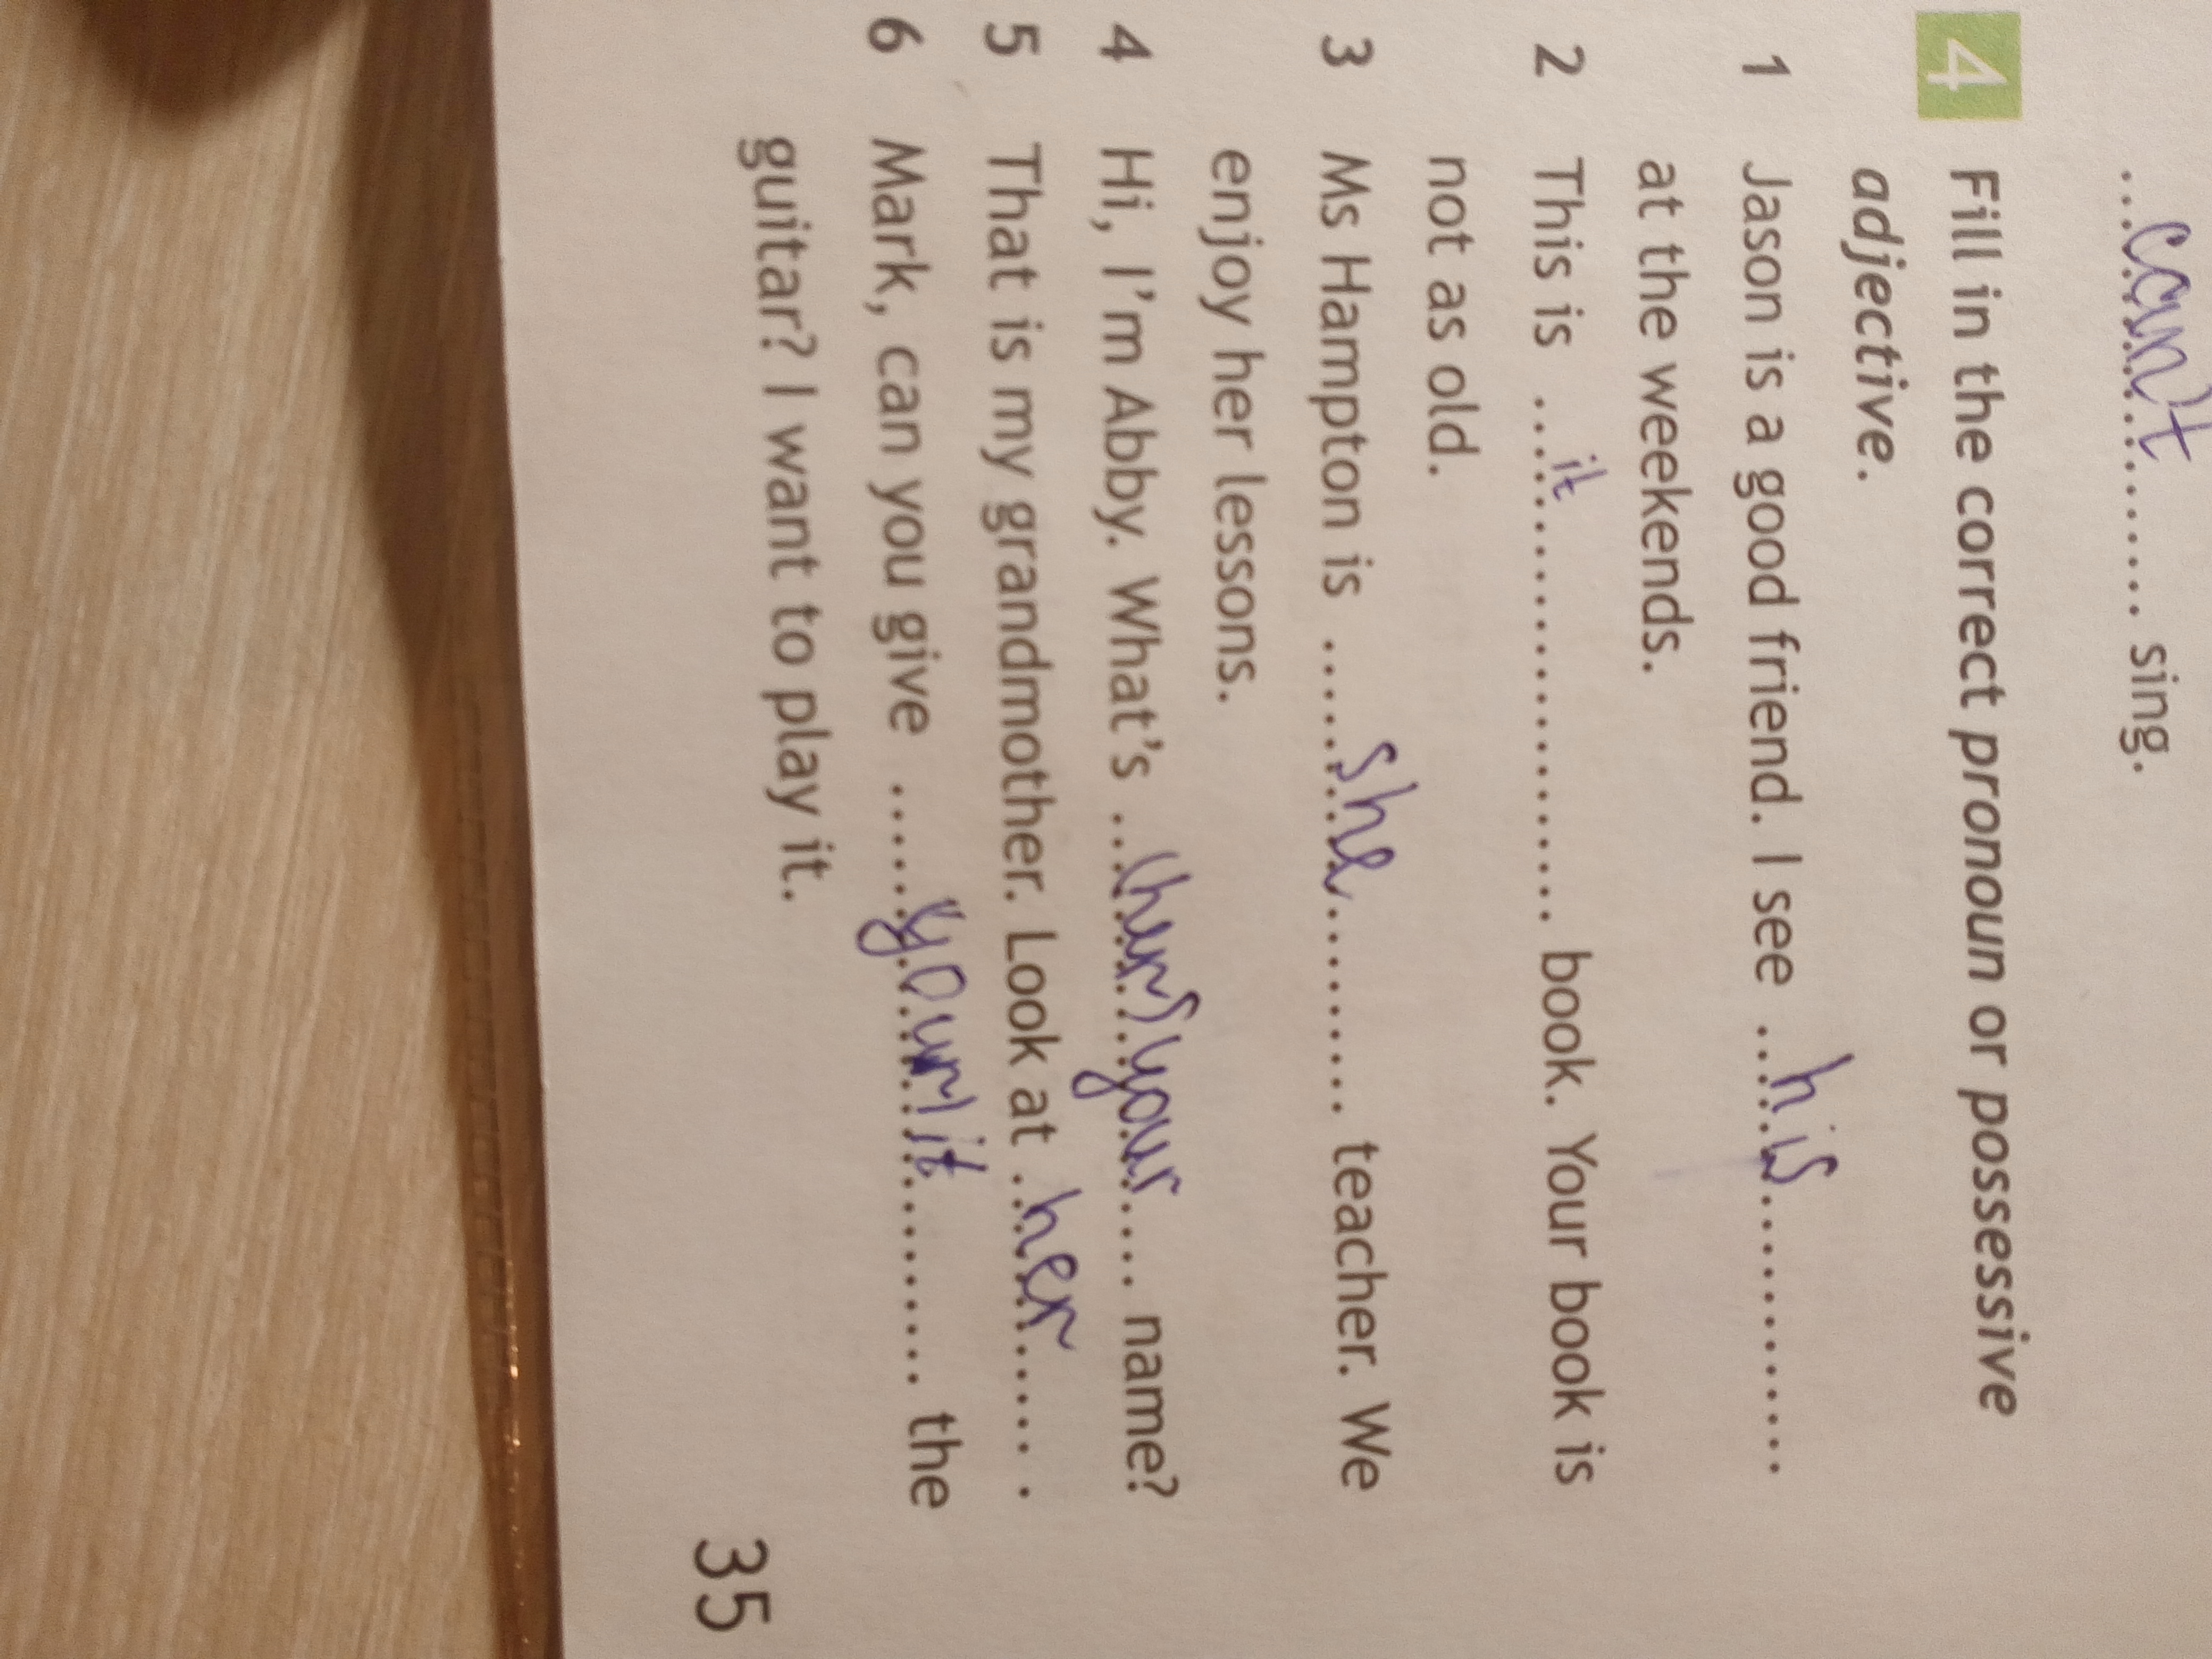 ...can't... sing.
4 Fill in the correct pronoun or possessive
adjective.
1 Jason is a good friend. I see ...his...
at the weekends.
2 This is ...it... book. Your book is
not as old.
3 Ms Hampton is ...she... teacher. We
enjoy her lessons.
4 Hi, I'm Abby. What's ...(her) your... name?
5 That is my grandmother. Look at ...her... .
6 Mark, can you give ...your it... the
guitar? I want to play it.
35